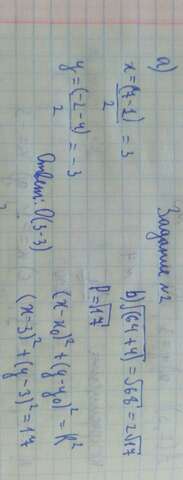 Задание №2
а)
x = (7-1)/2 = 3
y = (-2-4)/2 = -3
Ответ: O(3-3)
b) √(64+4) = √68 = 2√17
R = √17
(x-x₀)² + (y-y₀)² = R²
(x-3)² + (y-3)² = 17